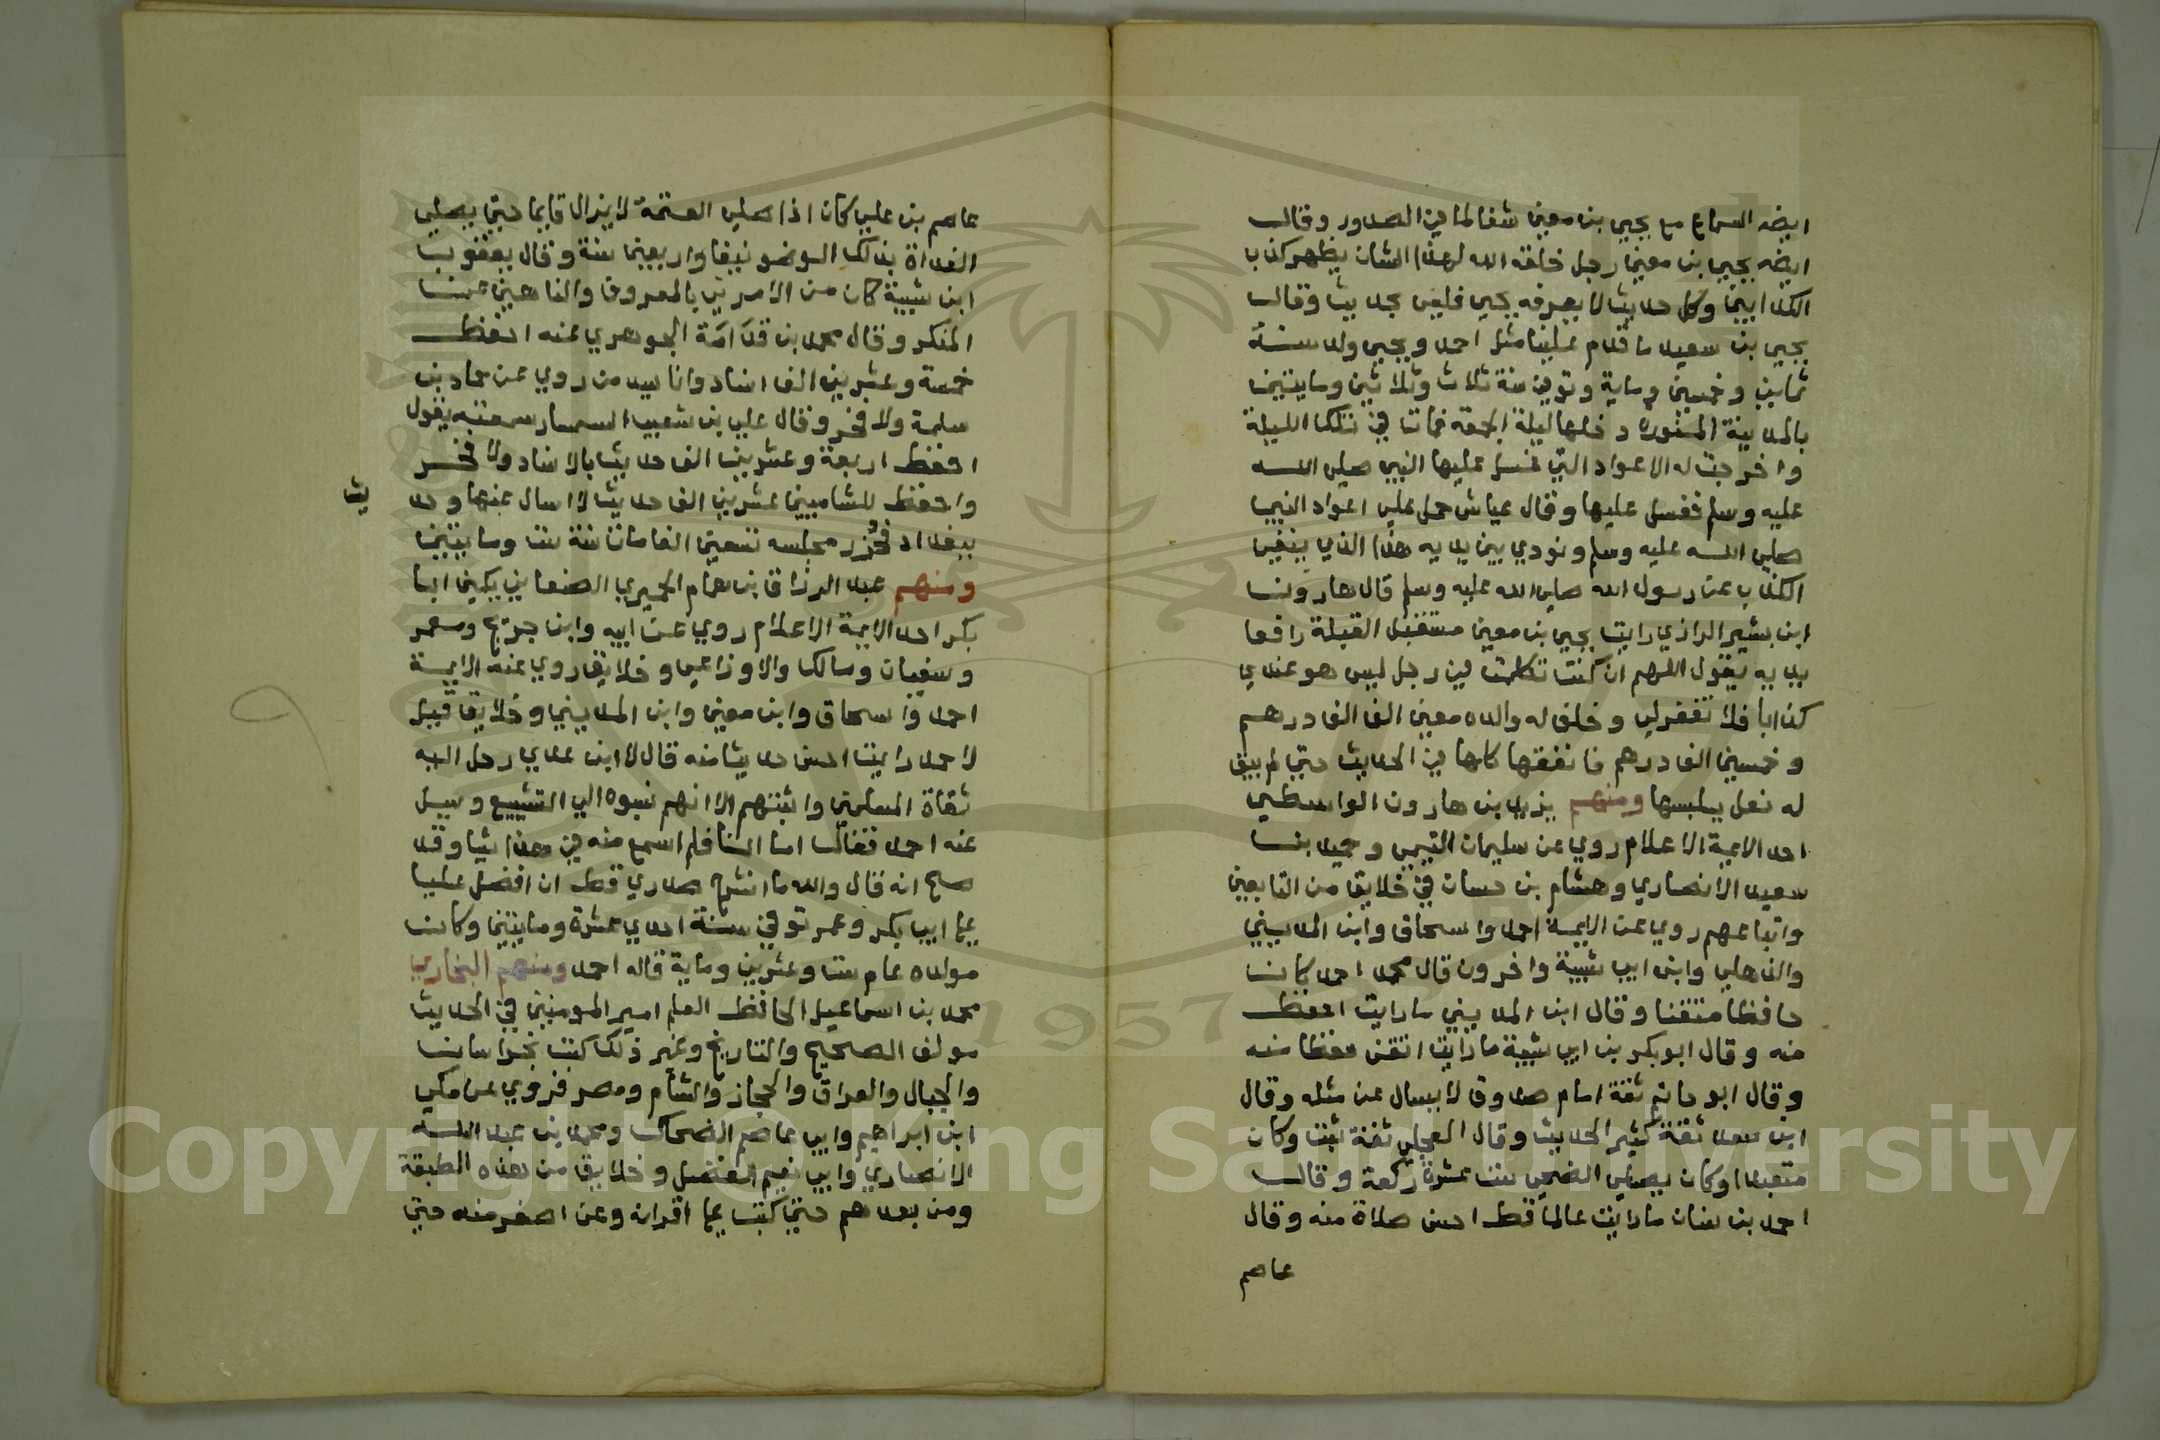 ايضه السماع مع يحيي بن معين شفا لما في الصدور وقال
ايضه يحيي بن معين رجل خلقه الله لهذا الشان يظهر كذب
الكذابين وكل حديث لا يعرفه يحيي فليس بحديث وقال
يحيي بن سعيد ما قدم علينا مثل احمد ويحيي ولد سنة
ثمان وخمسين وماية وتوفي سنة ثلاث وثلاثين ومايتين
بالمدينة المنوره دخلها ليلة الجمعة فمات في تلك الليلة
واخرجت له الاعواد التي غسل عليها النبي صلي الله
عليه وسلم فغسل عليها وقال عياش حمل علي اعواد النبي
صلي الله عليه وسلم ونودي بين يديه هذا الذي ينفي
الكذب عن رسول الله صلي الله عليه وسلم قال هارون
ابن بشير الرازي رايت يحيي بن معين مستقبل القبلة رافعا
يديه يقول اللهم ان كنت تكلمت في رجل ليس هو عندي
كذابا فلا تغفرلي وخلف له والده معين الف الف درهم
وخمسين الف درهم فانفقها كلها في الحديث حتي لم يبق
له نعل يلبسها ومنهم يزيد بن هارون الواسطي
احد الايمة الاعلام روي عن سليمان التيمي وحميد بن
سعيد الانصاري وهشام بن حسان في خلايق من التابعين
واتباعهم روي عن الايمة احمد واسحاق وابن المديني
والذهلي وابن ابي شيبة واخرون قال محمد احمد كان
حافظا متقنا وقال ابن المديني ما رايت احفظ
منه وقال ابو بكر بن ابي شيبة ما رايت اتقن حفظا منه
وقال ابو حاتم ثقة امام صدوق لا يسال عن مثله وقال
ابن سعد ثقة كثير الحديث وقال العجلي ثقة ثبت وكان
متعبدا وكان يصلي الضحي ست عشرة ركعة وقال
احمد بن سنان ما رايت عالما قط احسن صلاة منه وقال
عاصم
عاصم بن علي كان اذا صلي العتمة لا يزال قايما حتي يصلي
الغداة بذلك الوضو نيفا واربعين سنة وقال يعقوب
ابن شيبة كان من الامرين بالمعروف والناهين عن
المنكر وقال محمد بن قدامة الجوهري عنه احفظ
خمسة وعشرين الف اسناد وانا سيد من روي عن حماد بن
سلمة ولا فخر وقال علي بن شعيب السمسار سمعته يقول
احفظ اربعة وعشرين الف حديث بالاسناد ولا فخر
واحفظ للشاميين عشرين الف حديث لا اسال عنها وحد
يث
ببغداد فحزر مجلسه تسعين الفا مات سنة ست ومايتين
ومنهم عبد الرزاق بن همام الحميري الصنعاني يكني ابا
بكر احد الايمة الاعلام روي عن ابيه وابن جريج ومعمر
وسفيان ومالك والاوزاعي وخلايق روي عنه الايمة
احمد واسحاق وابن معين وابن المديني وخلايق قيل
لاحمد رايت احسن حديثا منه قال لا ابن عدي رحل اليه
ثقاة المسلمين وائمتهم الا انهم نسبوه الي التشييع وسيل
عنه احمد فقال اما انا فلم اسمع منه في هذا شيا وقد
صح انه قال والله ما انشرح صدري قط ان افضل عليا
علي ابي بكر وعمر توفي سنة احدي عشرة ومايتين وكان
مولده عام ست وعشرين وماية قاله احمد ومنهم البخاري
محمد بن اسماعيل الحافظ العلم امير المومنين في الحديث
مولف الصحيح والتاريخ وغير ذلك كتب بخراسان
والجبال والعراق والحجاز والشام ومصر فروي عن مكي
ابن ابراهيم وابي عاصم الضحاك ومحمد بن عبد الله
الانصاري وابي نعيم الفضل وخلايق من هذه الطبقة
ومن بعدهم حتي كتب علي اقرانه وعن اصغر منه حتي
Copyright © King Saud University
1957